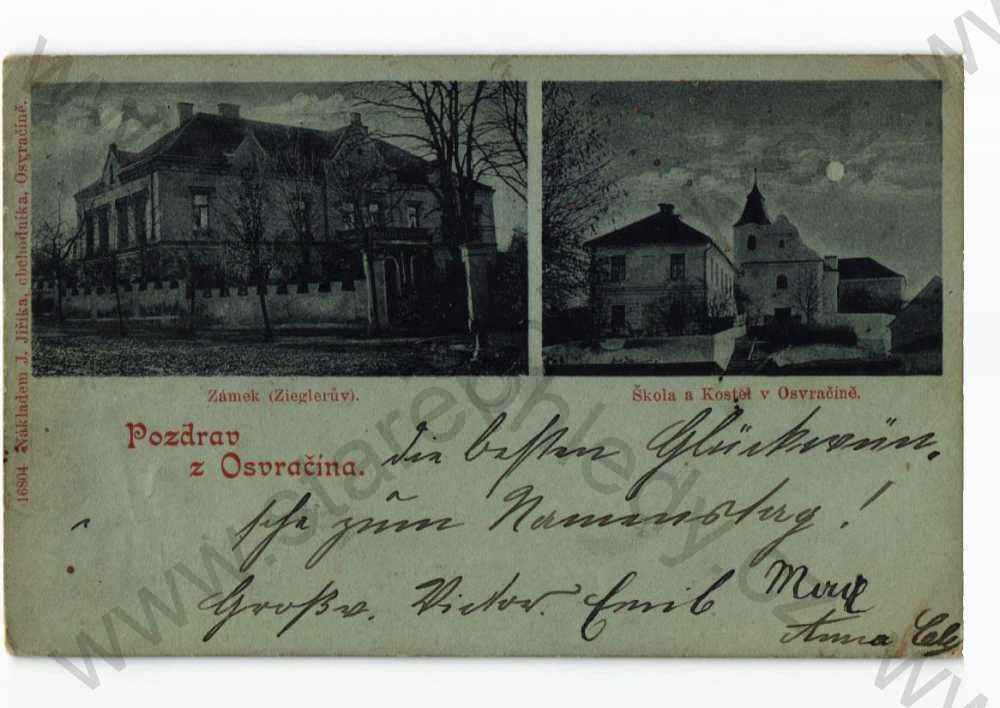 16804 Nákladem J. Jiříka, obchodníka, Osvračíně.
Zámek (Zieglerův).
Škola a Kostel v Osvračíně.
Pozdrav
z Osvračína.
die besten Glückwün-
sche zum Namenstag!
Großv. Victor. Emil
Anna
www.starepohledy.cz